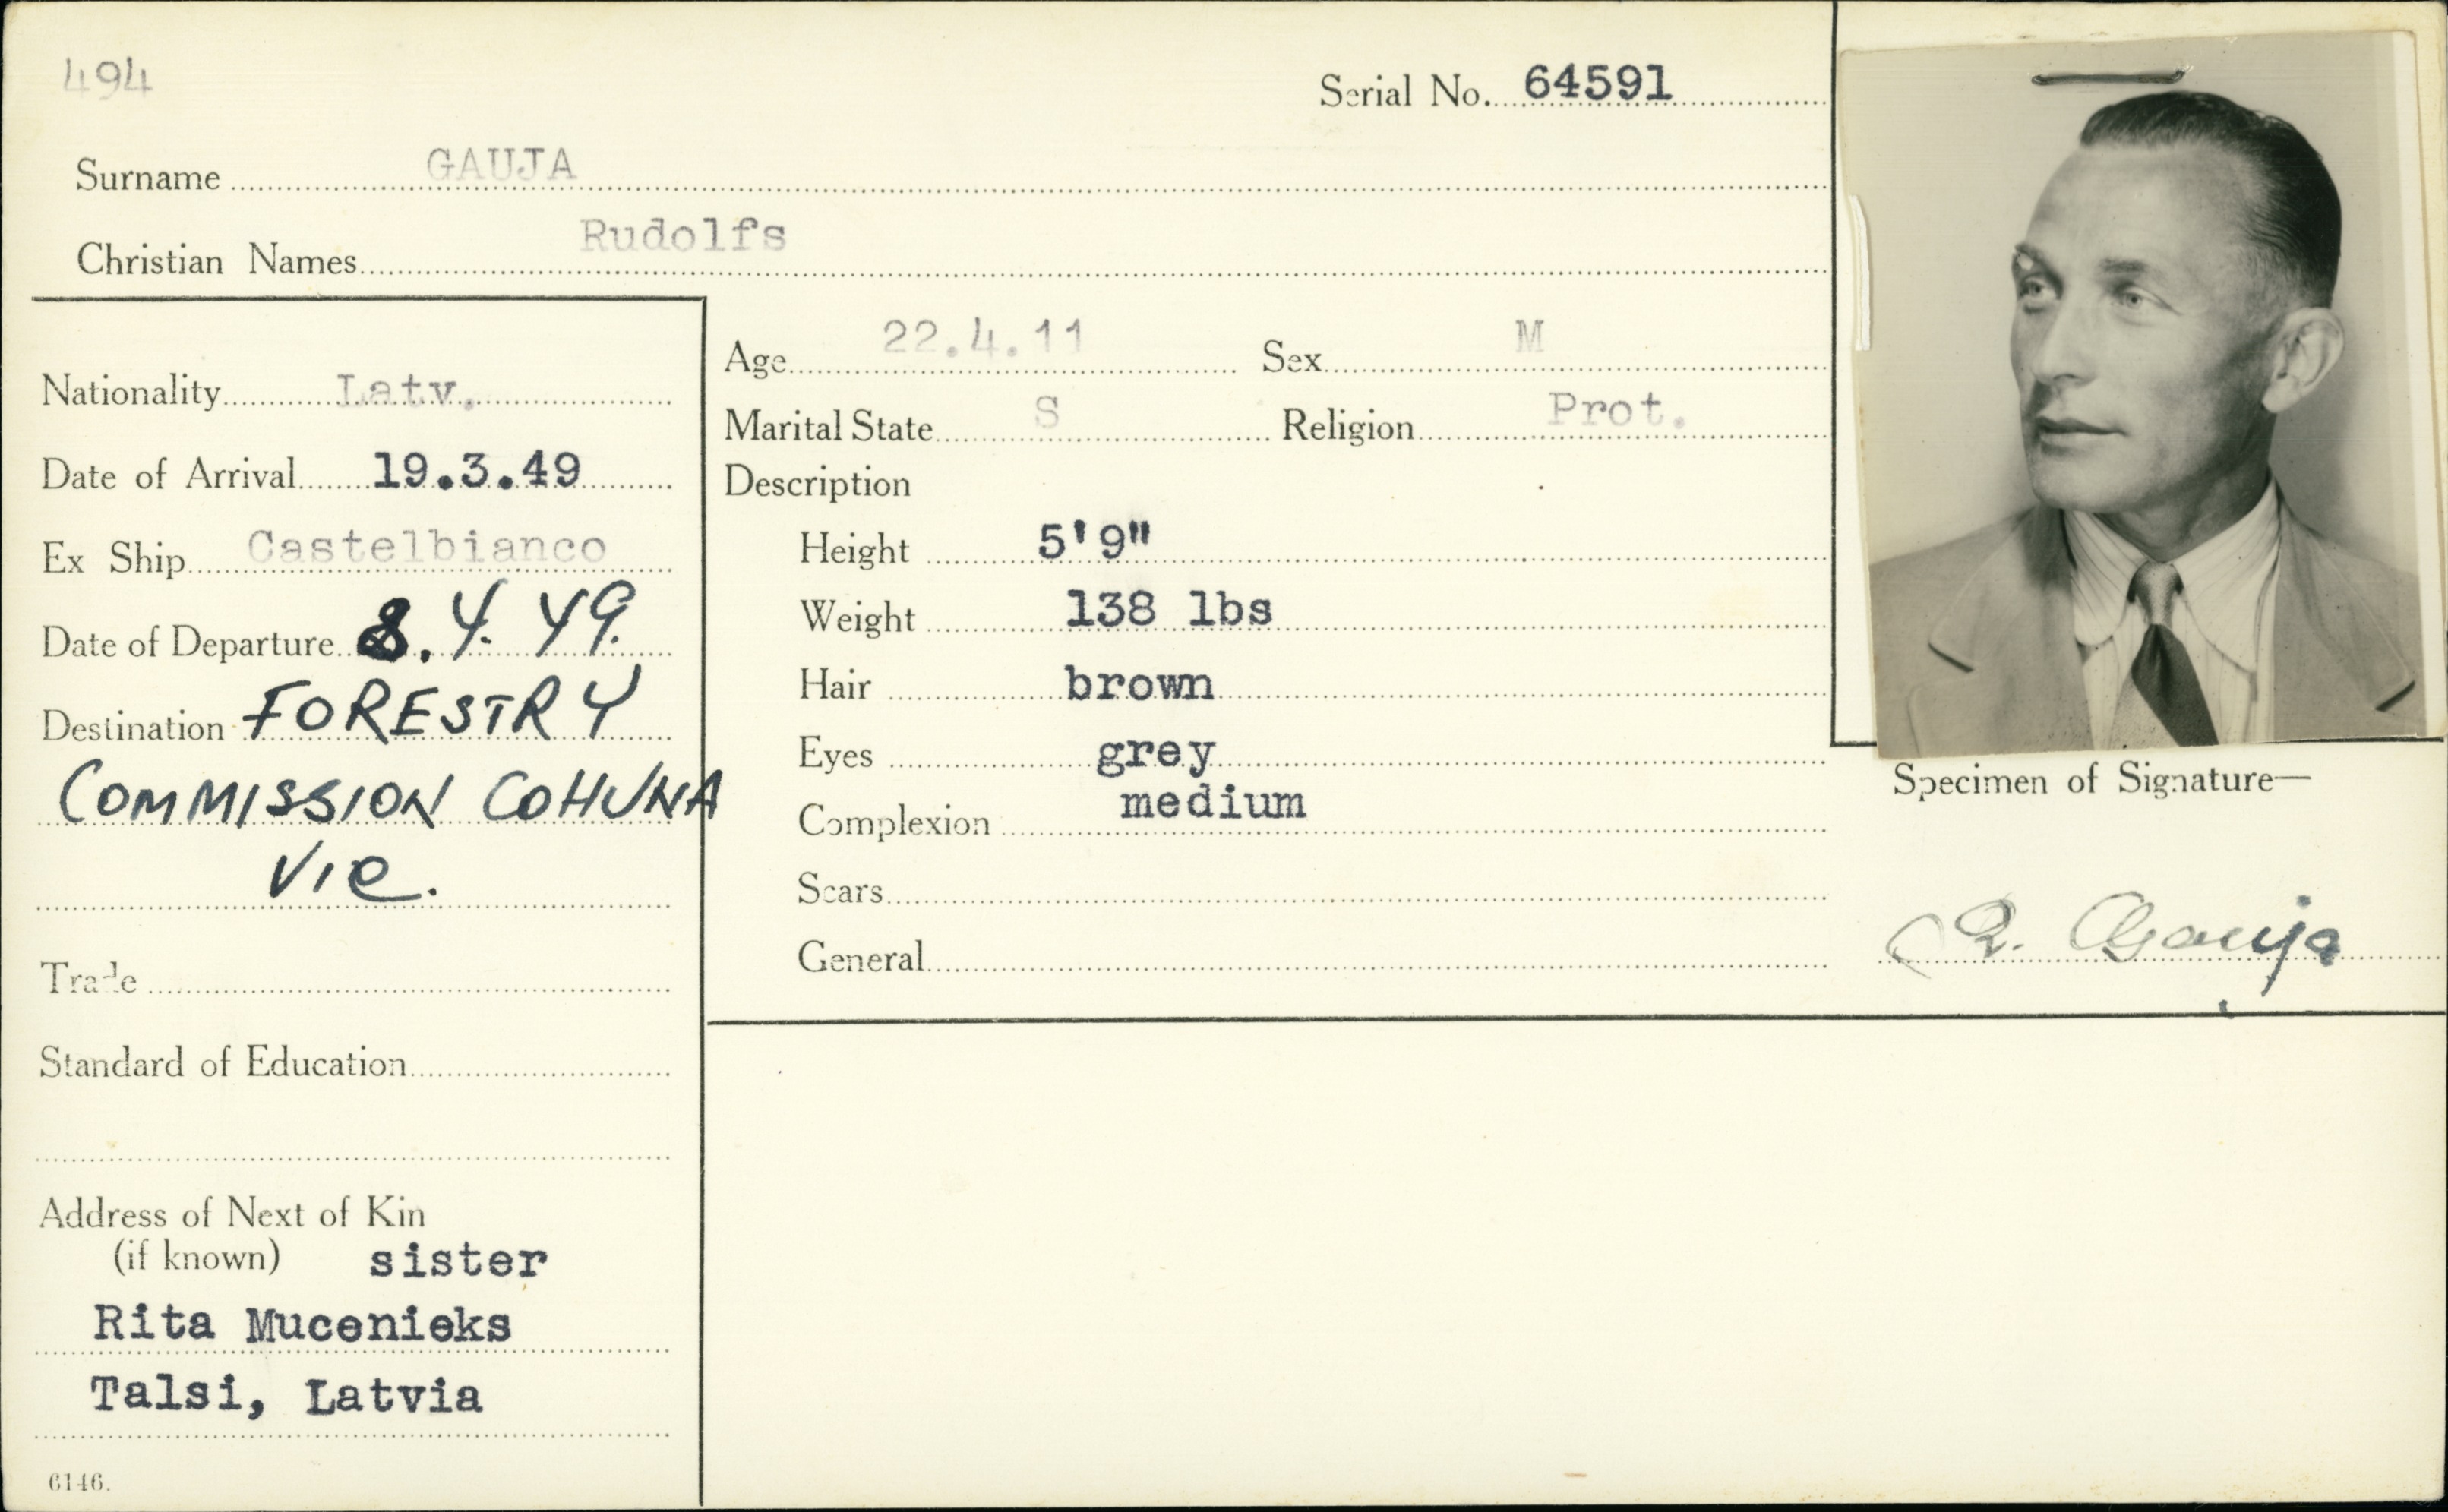 494
Serial No. 64591
Surname GAUJA
Christian Names Rudolfs
Nationality Latv.
Date of Arrival 19.3.49
Ex Ship Castelbianco
Date of Departure 8.4.49.
Destination FORESTRY
COMMISSION COHUNA
Vic.
Trade
Standard of Education
Address of Next of Kin
(if known) sister
Rita Mucenieks
Talsi, Latvia
6146.
Age 22.4.11 Sex M
Marital State S Religion Prot.
Description
Height 5'9"
Weight 138 lbs
Hair brown
Eyes grey
Complexion medium
Scars
General
Specimen of Signature—
R. Gauja